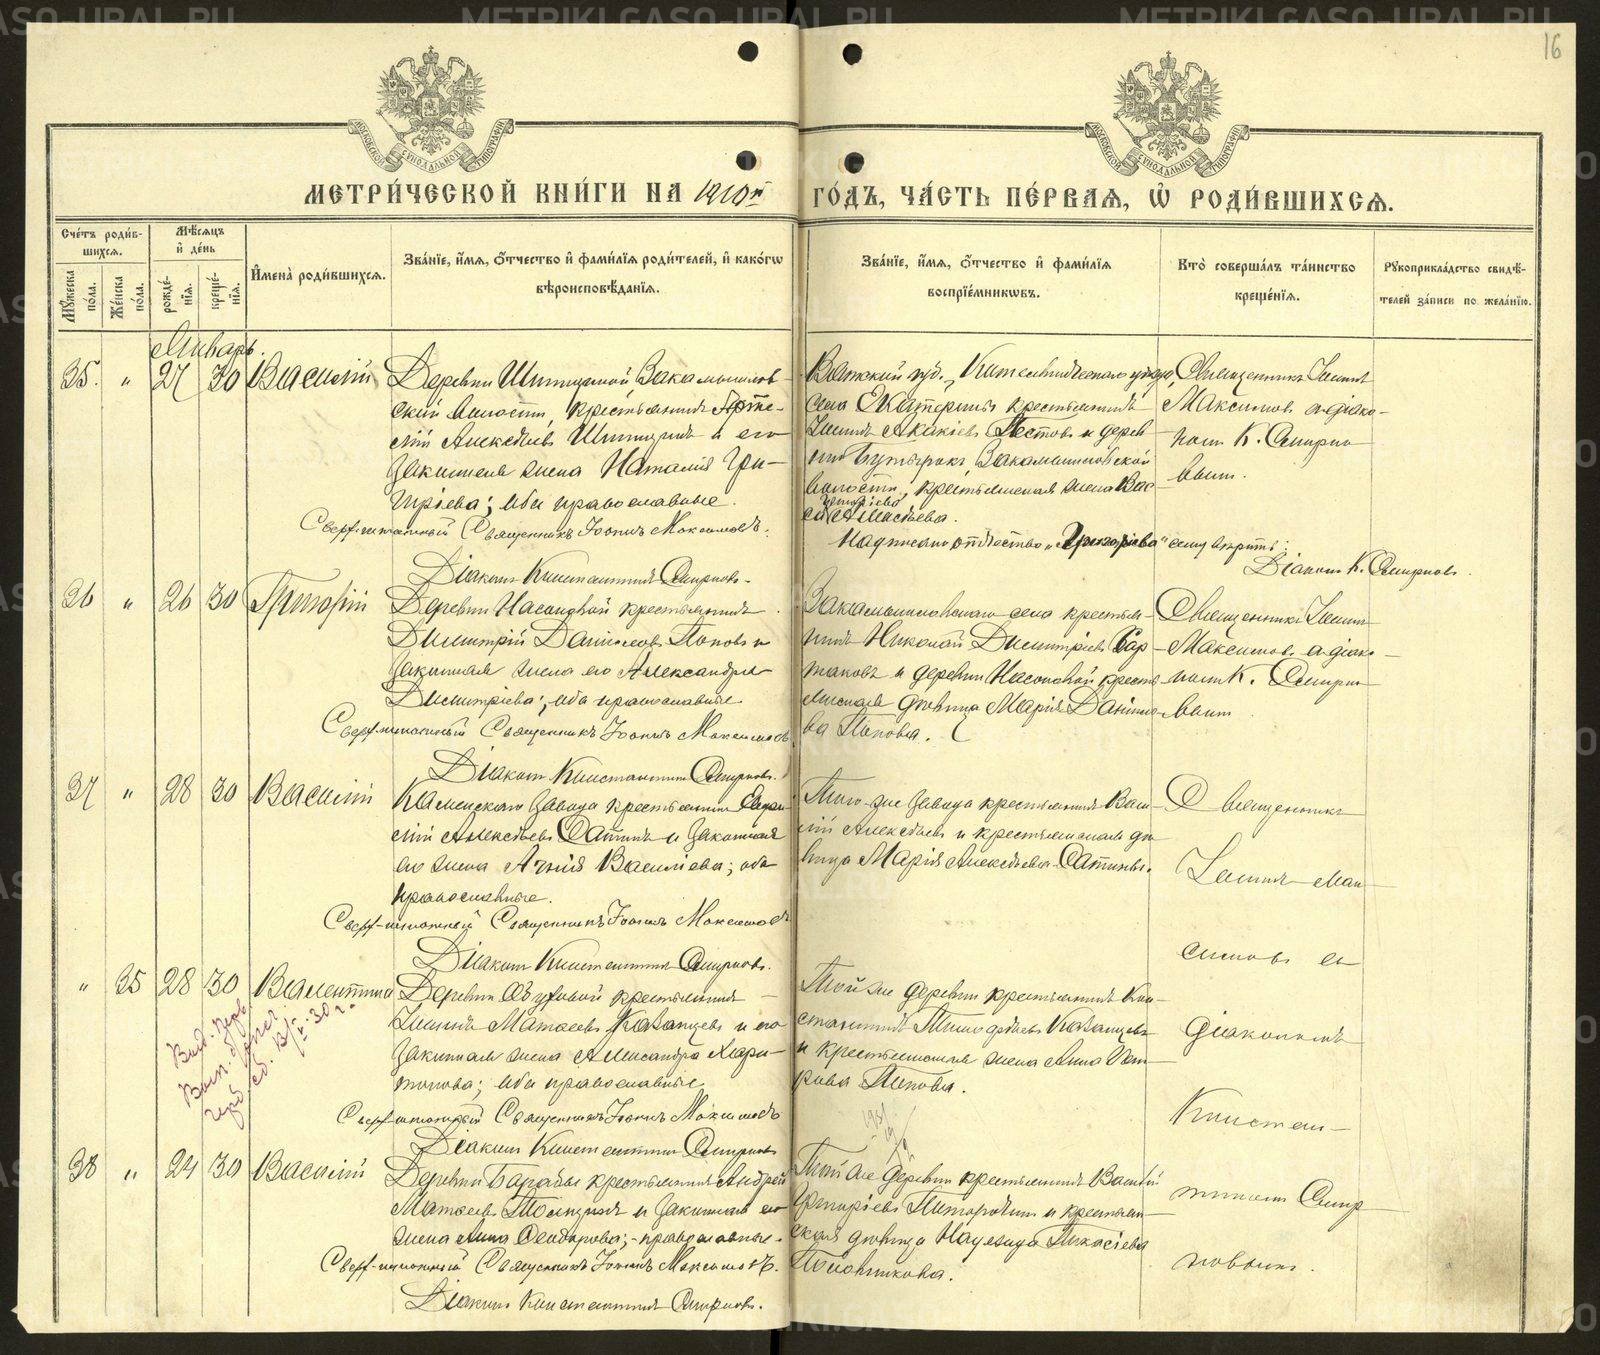 16
МЕТРИ́ЧЕСКОЙ КНИ́ГИ НА 1910й ГО́ДЪ, ЧА́СТЬ ПЕ́РВАѦ, Ѽ РОДИ́ВШИХСѦ.
Сче́тъ роди́вшихсѧ.
Мѣ́сѧцъ и҆ де́нь
И҆мена̀ роди́вшихсѧ.
Зва́нїе, и҆́мѧ, ѻ҆́тчество и҆ фами́лїѧ роди́телей, и҆ како́гѡ
вѣроисповѣ́данїѧ.
Зва́нїе, и҆́мѧ, ѻ҆́тчество и҆ фами́лїѧ
воспрїе́мникѡвъ.
Кто̀ соверша́лъ та́инство
креще́нїѧ.
Рꙋкоприкла́дство свидѣ́-
телей за́писи по жела́нїю.
Мꙋ́жеска по́ла.
Же́нска по́ла.
рожде́-нїѧ.
креще́-нїѧ.
Январь.
35. " 27 30 Василій
Деревни Шипициной Закамышлов-
ской волости, крестьянинъ
Алексѣевъ Шипицинъ и его
законная жена Наталія Гри-
горіева; оба православные.
Сверхштатный Священникъ Іоаннъ Максимовъ.
Діаконъ Константинъ Смирновъ.
Вятской губ.,
села Екатерины крестьянинъ
Іоаннъ Акакіевъ Пестовъ и дерев-
ни Бутырокъ Закамышловской
волости, крестьянская жена Вас-
Григоріева
Надписано отчество „Григоріева" сему вѣрить:
Діаконъ К. Смирновъ.
Священникъ Іоаннъ
Максимовъ съ діако-
номъ К. Смирно-
вымъ.
36 " 26 30 Григорій
Деревни Насоновой крестьянинъ
Димитрій Даниловъ Поповъ и
законная жена его Александра
Димитріева; оба православные.
Сверхштатный Священникъ Іоаннъ Максимовъ.
Діаконъ Константинъ Смирновъ.
Закамышловскаго села крестья-
нинъ Николай Димитріевъ
и деревни Насоновой кресть-
янская дѣвица Марія Данило-
ва Попова.
Священникъ Іоаннъ
Максимовъ съ діако-
номъ К. Смирно-
вымъ
37 " 28 30 Василій
Каменскаго завода крестьянинъ
Алексѣевъ Сатинъ и законная
его жена Агнія Василіева; оба
православные.
Сверхштатный Священникъ Іоаннъ Максимовъ.
Діаконъ Константинъ Смирновъ.
Того-же завода крестьянинъ Васи-
лій Алексѣевъ и крестьянская дѣ-
вица Марія Алексѣева Сатины.
Священникъ
Іоаннъ Мак-
симовъ съ
діакономъ
Констан-
тиномъ Смир-
новымъ.
" 35 28 30 Валентина
крестьянинъ
Іоаннъ Матѳеевъ Казанцевъ и его
законная жена Александра Хари-
тонова; оба православные
Сверхштатный Священникъ Іоаннъ Максимовъ
Діаконъ Константинъ Смирновъ
Той-же деревни крестьянинъ Кон-
стантинъ Тимоѳеевъ Казанцевъ
и крестьянская жена Анна Пет-
рова Попова.
38 " 24 30 Василій
крестьянинъ Андрей
Матѳеевъ и законная его
жена Анна Ѳеодорова; православные.
Сверхштатный Священникъ Іоаннъ Максимовъ.
Діаконъ Константинъ Смирновъ.
Той же деревни крестьянинъ
Григоріевъ и крестьян-
ская дѣвица Надежда